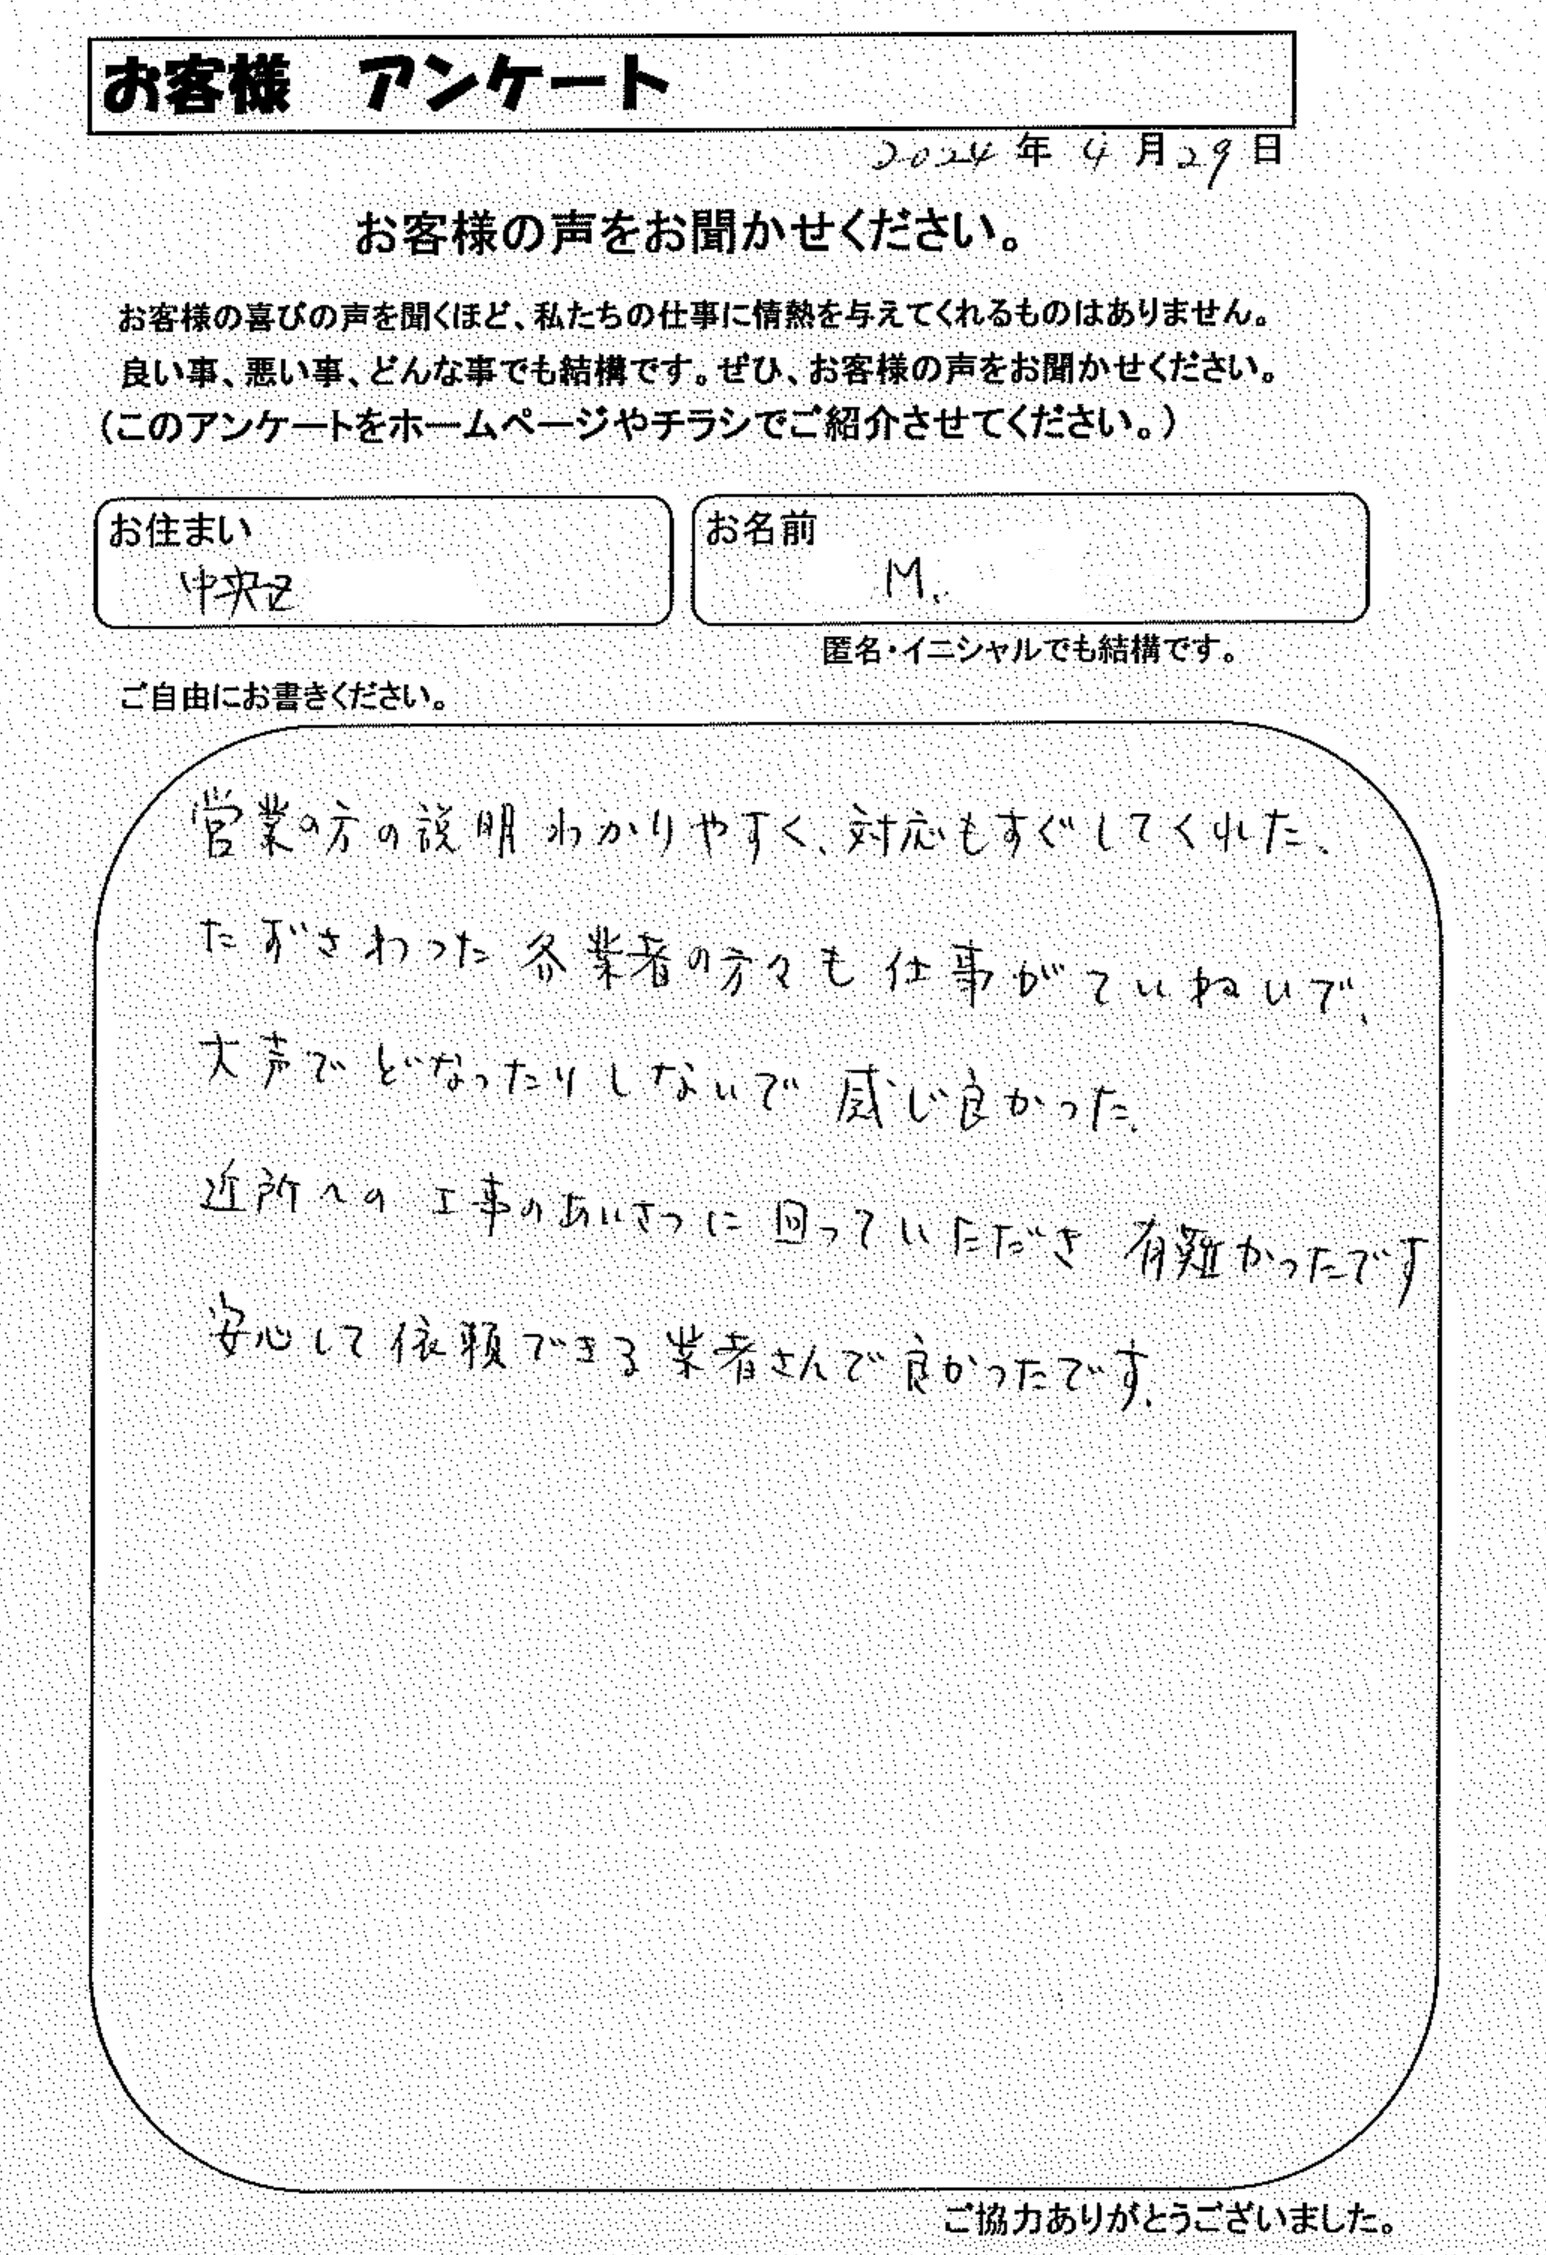 お客様　アンケート
2024 年 4 月 29 日
お客様の声をお聞かせください。
お客様の喜びの声を聞くほど、私たちの仕事に情熱を与えてくれるものはありません。
良い事、悪い事、どんな事でも結構です。ぜひ、お客様の声をお聞かせください。
(このアンケートをホームページやチラシでご紹介させてください。)
お住まい
中央区
お名前
M.
匿名・イニシャルでも結構です。
ご自由にお書きください。
営業の方の説明わかりやすく、対応もすぐしてくれた、
たずさわった各業者の方々も仕事がていねいで、
大声でどなったりしないで感じ良かった。
近所への工事のあいさつに回っていただき有難かったです
安心して依頼できる業者さんで良かったです。
ご協力ありがとうございました。